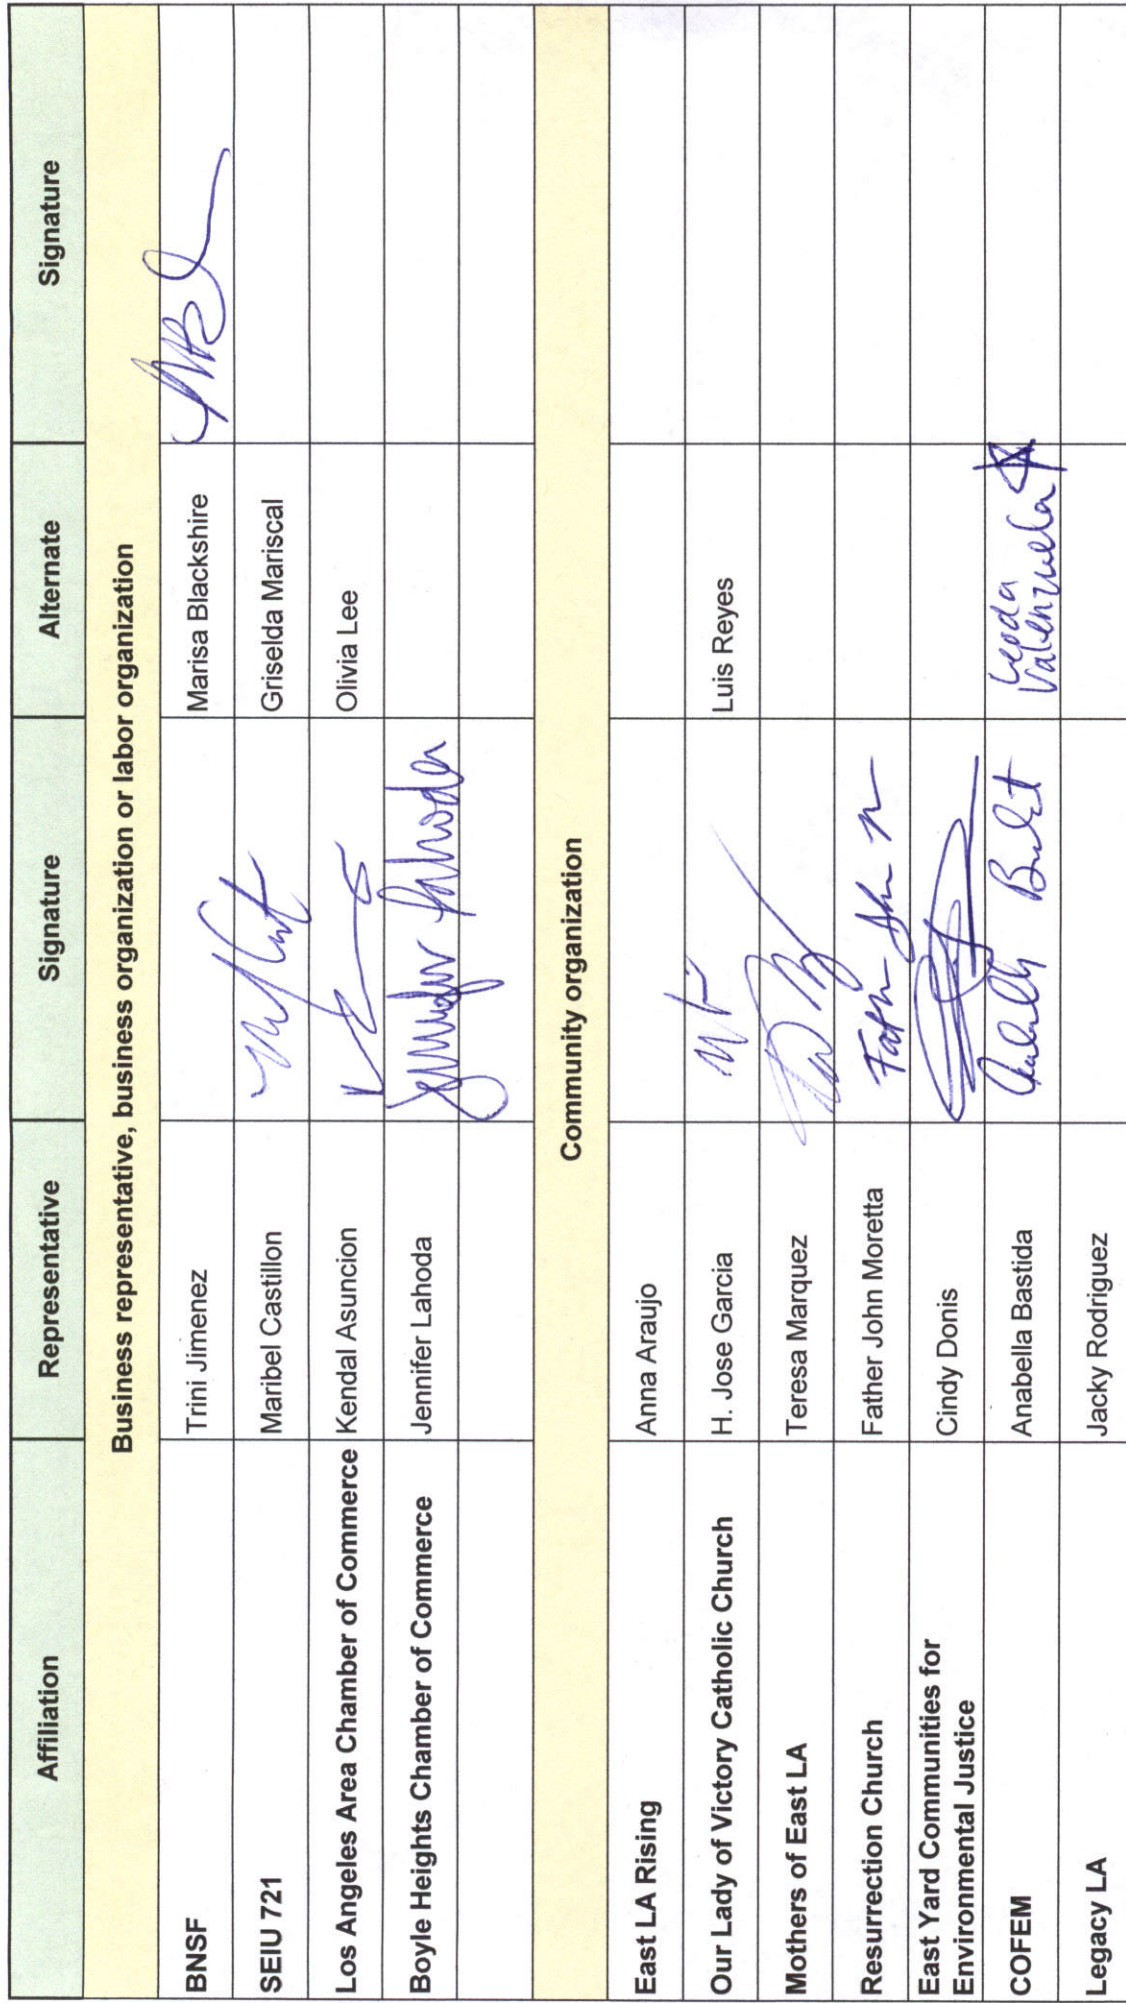 Affiliation Representative Signature Alternate Signature
Business representative, business organization or labor organization
BNSF Trini Jimenez Marisa Blackshire
SEIU 721 Maribel Castillon Griselda Mariscal
Los Angeles Area Chamber of Commerce Kendal Asuncion Olivia Lee
Boyle Heights Chamber of Commerce Jennifer Lahoda Jennifer Lahoda
Community organization
East LA Rising Anna Araujo
Our Lady of Victory Catholic Church H. Jose Garcia Luis Reyes
Mothers of East LA Teresa Marquez
Resurrection Church Father John Moretta
East Yard Communities for
Environmental Justice Cindy Donis
COFEM Anabella Bastida
Valenzuela
Legacy LA Jacky Rodriguez